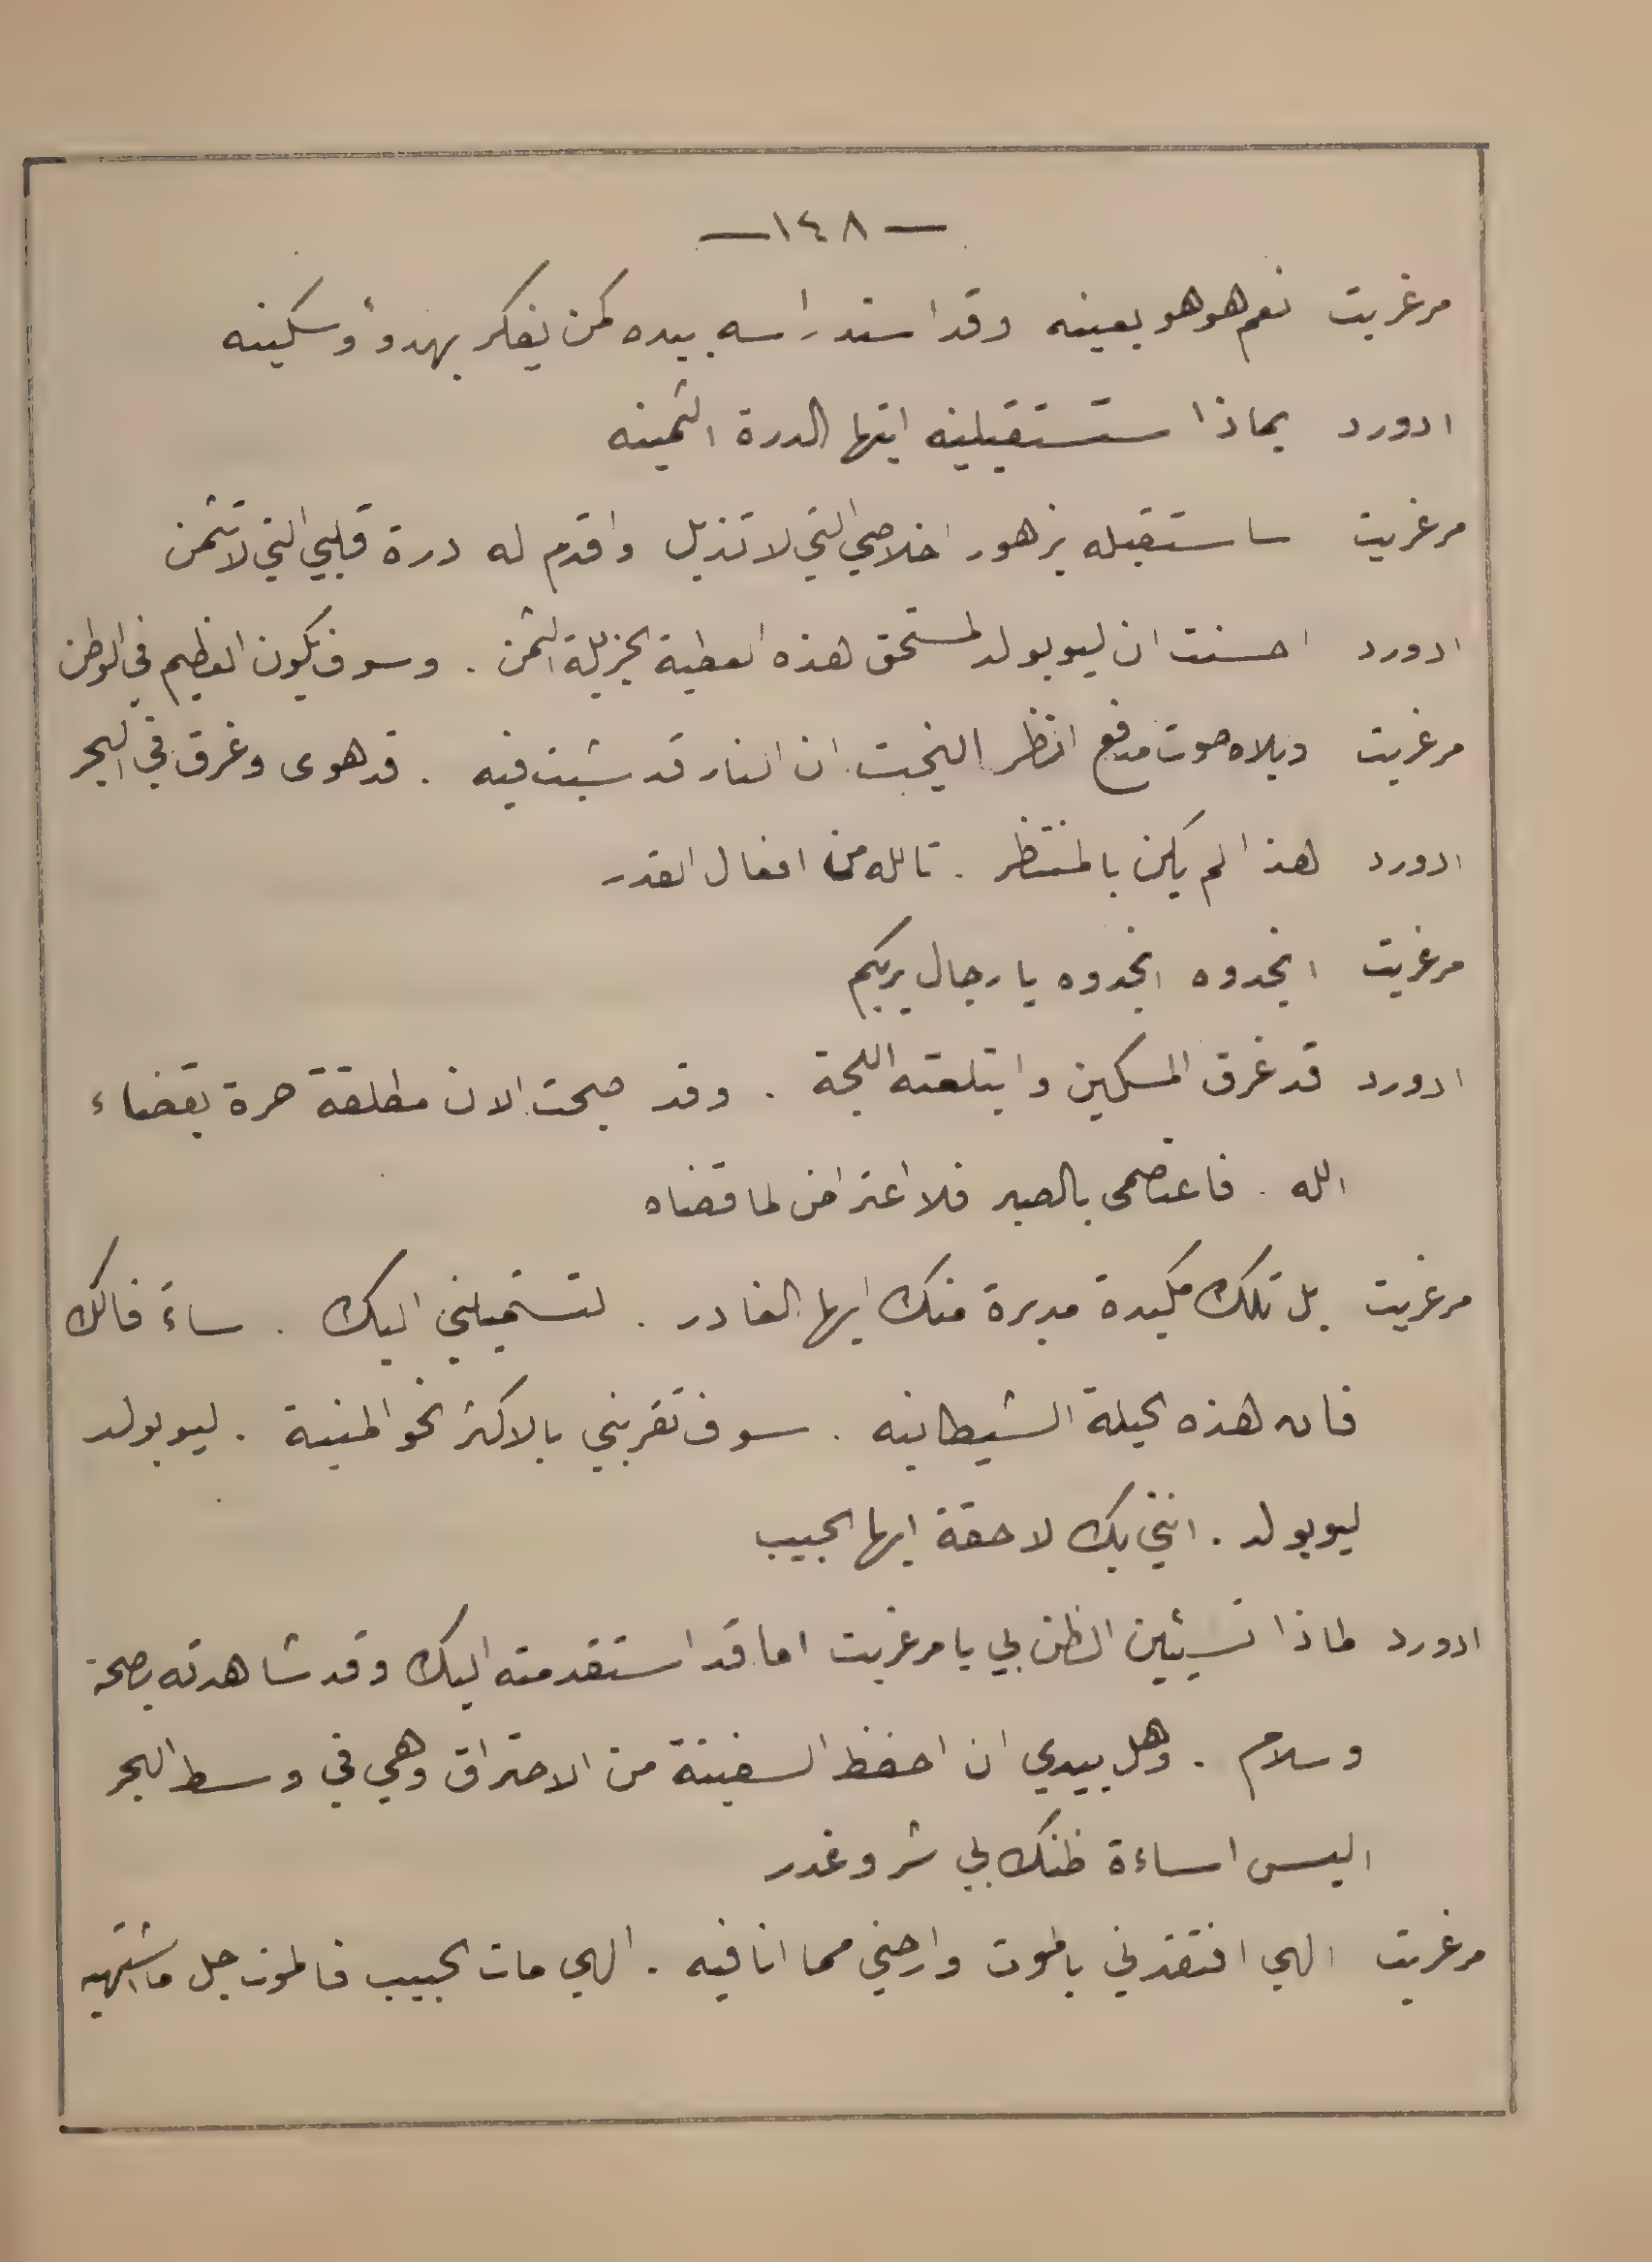 — ١٤٨ —
مرغريت نعم هو هو بعينه وقد اسند راسه بيده كمن يفكر بهدوء وسكينه
ادورد بماذا ستستقبلينه ايتها الدرة الثمينه
مرغريت ساستقبله بزهور اخلاصي التي لا تذبل واقدم له درة قلبي التي لا تثمن
ادورد احسنت ان ليوبولد لمستحق هذه العطية الجزيلة الثمن . وسوف يكون العظيم في الوطن
مرغريت ويلاه صوت مدفع انظر اليخت ان النار قد شبت فيه . قد هوى وغرق في البحر
ادورد هذا لم يكن بالمنتظر . تالله من افعال القدر
مرغريت انجدوه انجدوه يا رجال بربكم
ادورد قد غرق المسكين وابتلعته اللجة . وقد صبحت الان مطلقة حرة بقضاء
الله . فاعتصمى بالصبر فلا اعتراض لما قضاه
مرغريت بل تلك مكيدة مدبرة منك ايها الغادر . لتستميلني اليك . ساء فالك
فان هذه الحيلة الشيطانيه . سوف تقربني بالاكثر نحو المنية . ليوبولد
ليوبولد . انني بك لاحقة ايها الحبيب
ادورد لماذا تسيئين الظن بي يا مرغريت اما قد استقدمته اليك وقد شاهدته بصحة
وسلام . وهل بيدي ان احفظ السفينة من الاحتراق وهي في وسط البحر
اليس اساءة ظنك بي شر وغدر
مرغريت الهي افتقدني بالموت وارحني مما انا فيه . الهي مات الحبيب فالموت جل ما اشتهيه